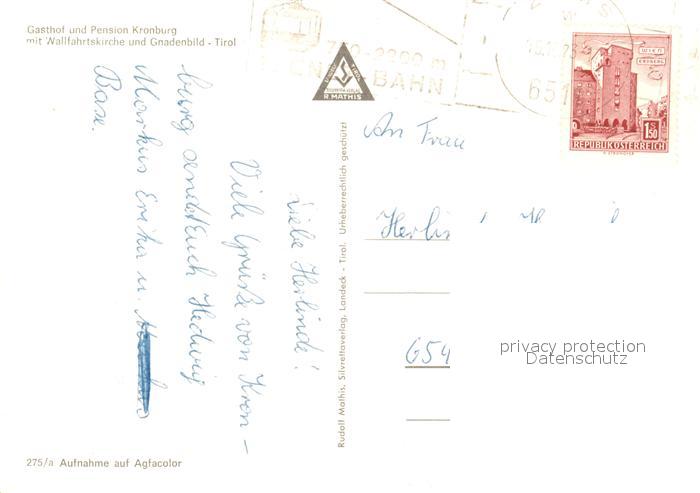 Gasthof und Pension Kronburg
mit Wallfahrtskirche und Gnadenbild - Tirol
Liebe Herlinde!
Viele Grüße von Kron-
burg sendet Euch Hedwig
Markus Erika u.
Base.
275/a Aufnahme auf Agfacolor
Rudolf Mathis, Silvrettaverlag, Landeck - Tirol. Urheberrechtlich geschützt
R. MATHIS
2200 m
BAHN
651
WIEN
ERDBERG
1.50
S
REPUBLIK ÖSTERREICH
An Frau
654
privacy protection
Datenschutz